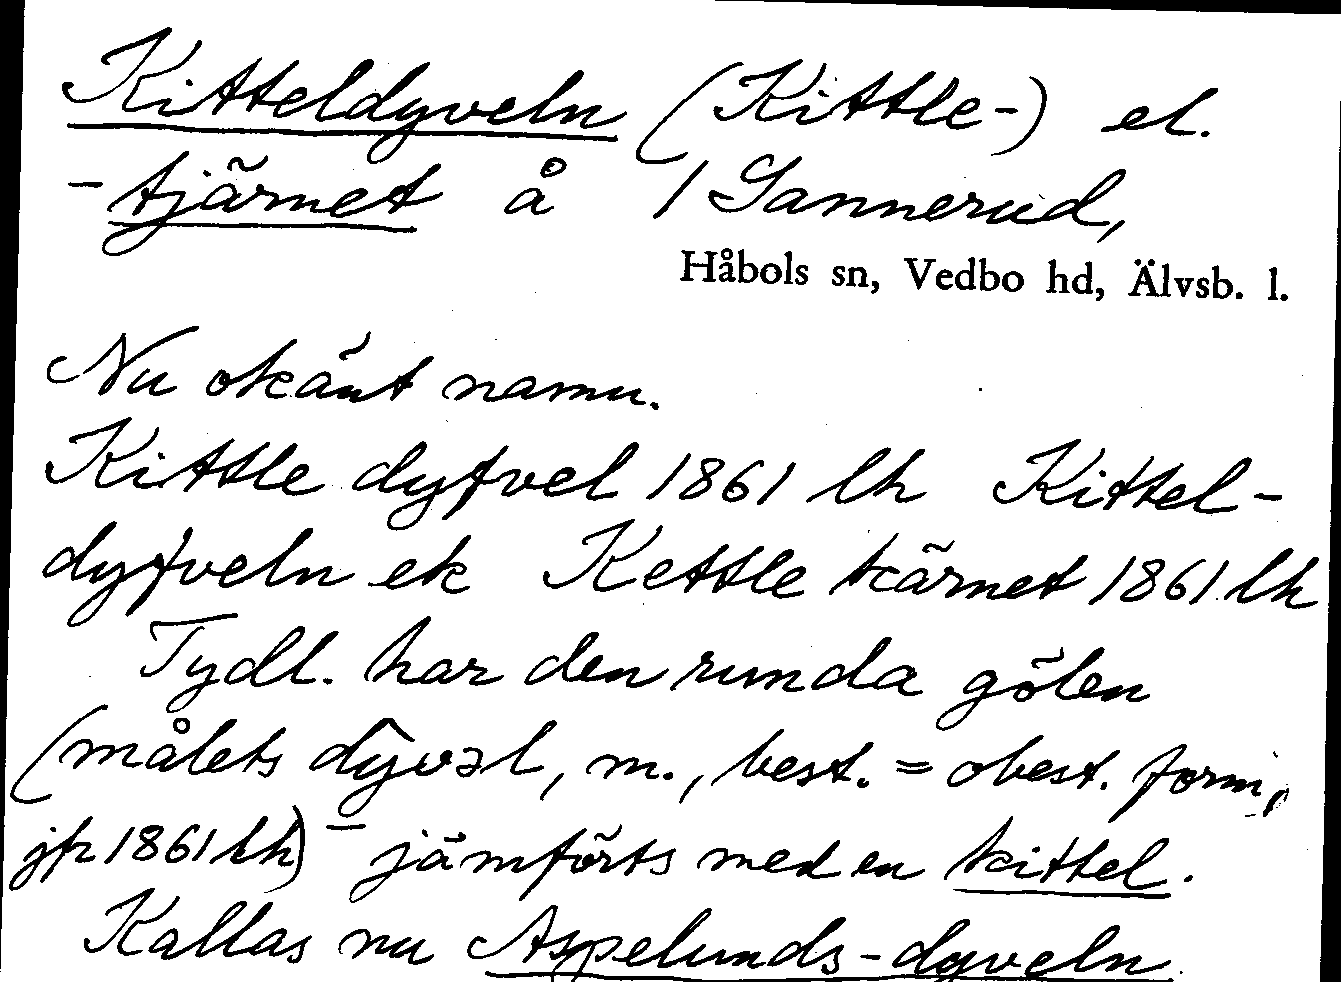 Kitteldyveln (Kittle-) el.
-tjärnet å 1 Sannerud,
Håbols sn, Vedbo hd, Älvsb. l.
Nu okänt namn.
Kittle dyfvel 1861 lh Kittel-
dyfveln ek Kettle kärnet 1861 lh
Tydl. har den runda gölen
(målets dy̑vəl, m., best. = obest. form,
jfr 1861 lh) jämförts med en kittel.
Kallas nu Aspelunds-dyveln